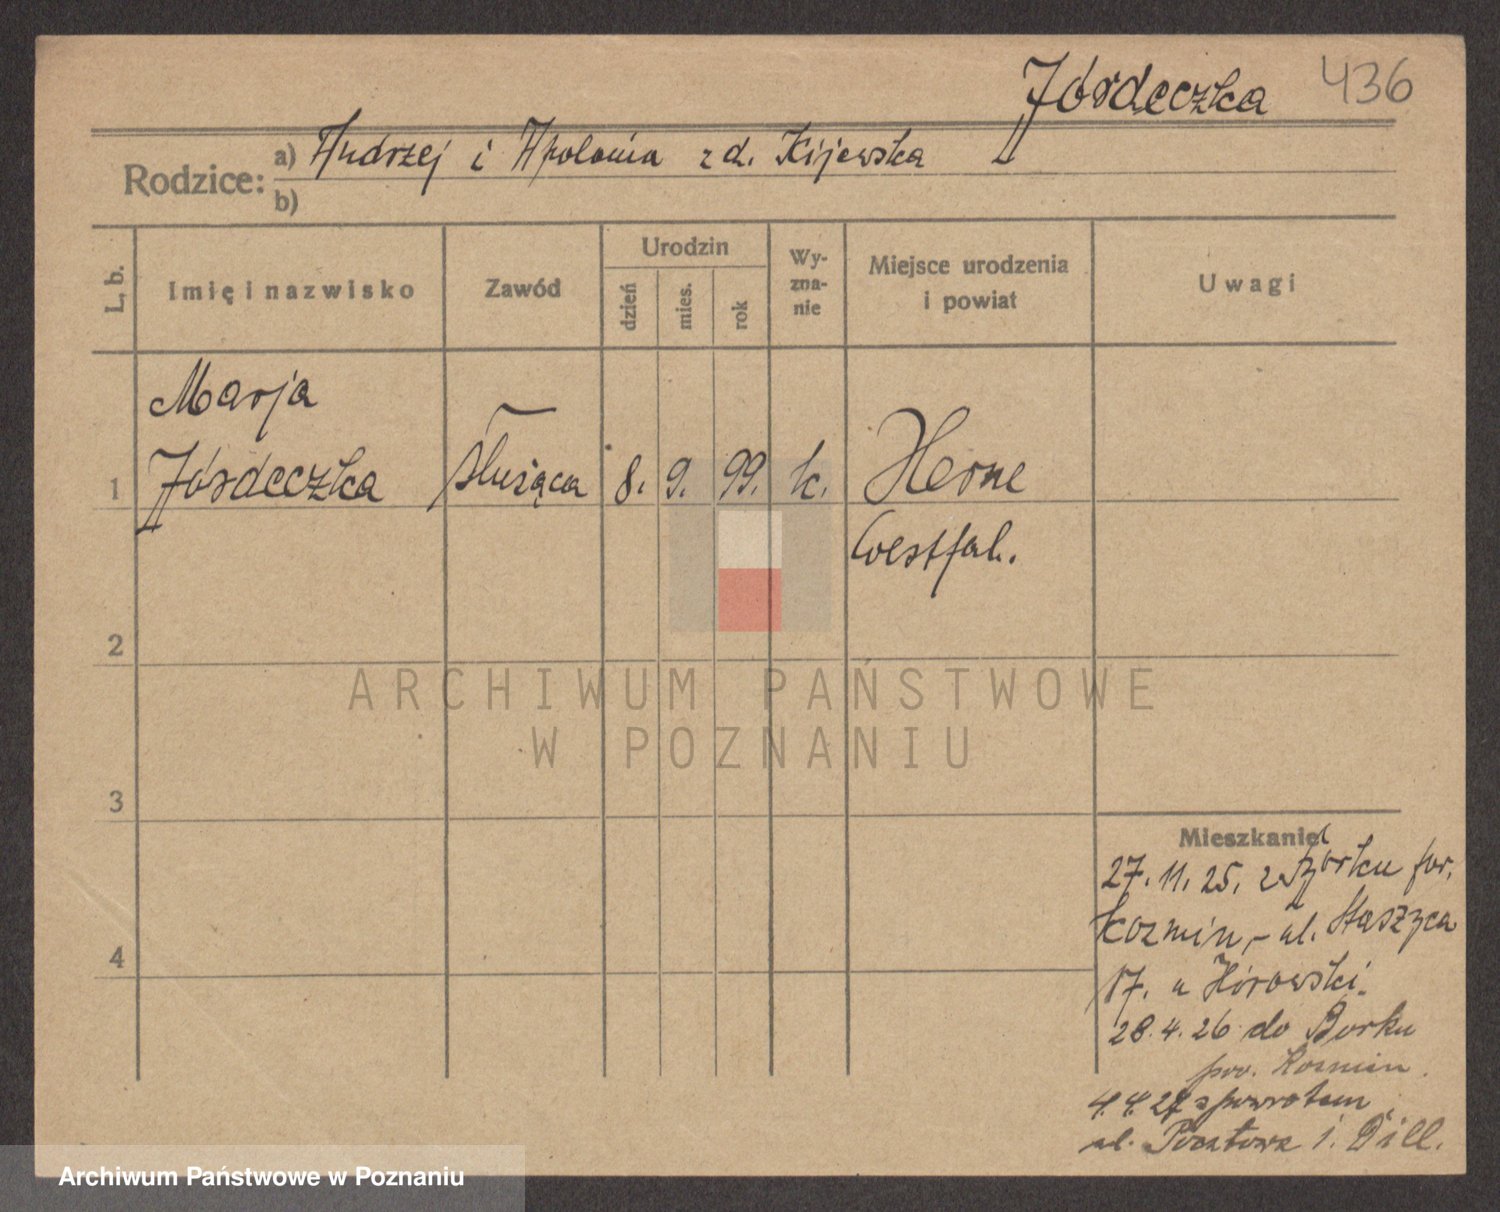 Jórdeczka 436
Rodzice: a) Andrzej i Apolonia z d. Kijewska
b)
L. b. Imię i nazwisko Zawód Urodzin dzień mies. rok Wyznanie Miejsce urodzenia i powiat Uwagi
Marja
1 Jórdeczka służąca 8. 9. 99. k. Herne
Westfal.
2
ARCHIWUM PAŃSTWOWE
W POZNANIU
3
Mieszkanie
27. 11. 25. z Borku pow.
Kozmin, - ul. Staszyca
17. u Hórowski.
4
28. 4. 26 do Borku
pow. Kozmin.
4. 4. 27 spowrotem
ul. Pocztowa 1. Dill.
Archiwum Państwowe w Poznaniu